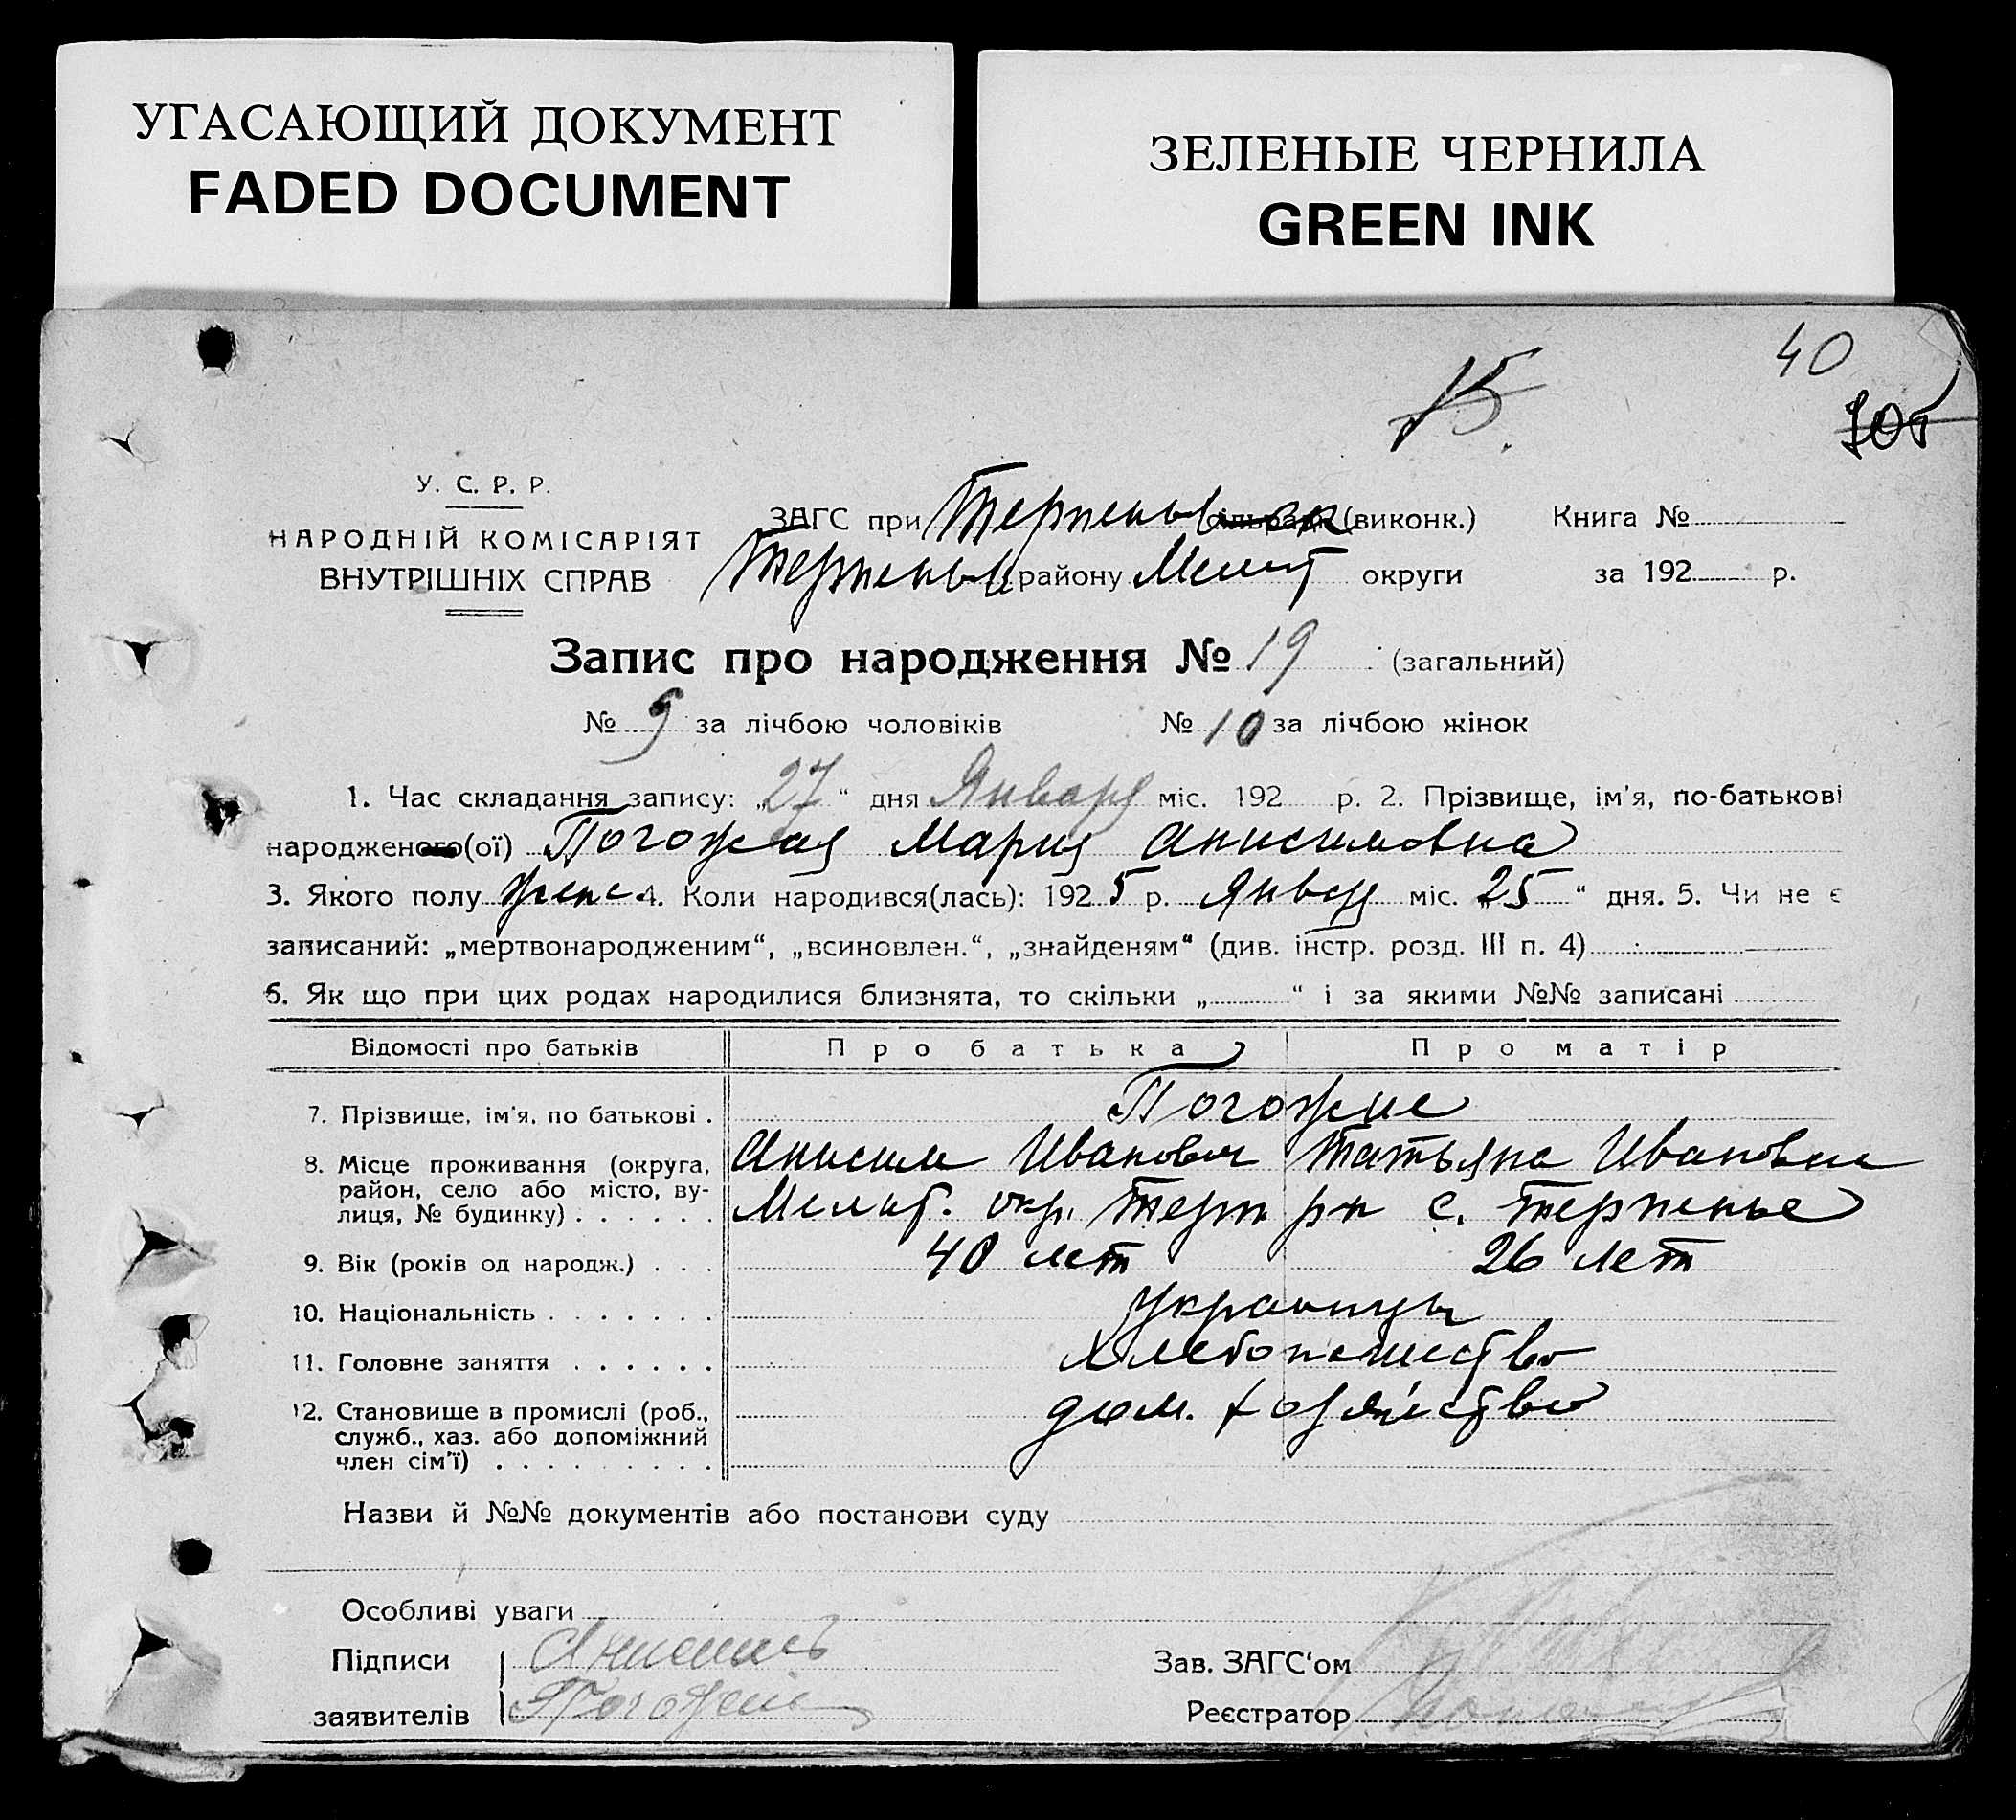 УГАСАЮЩИЙ ДОКУМЕНТ
FADED DOCUMENT
ЗЕЛЕНЫЕ ЧЕРНИЛА
GREEN INK
40
15
У. С. Р. Р.
НАРОДНІЙ КОМІСАРІЯТ
ВНУТРІШНІХ СПРАВ
ЗАГС при (виконк.) Книга №
району Мелит округи за 192 р.
Запис про народження № 19 (загальний)
№ 9 за лічбою чоловіків № 10 за лічбою жінок
1. Час складання запису: „27“ дня Января міс. 192 р. 2. Прізвище, ім'я, по-батькові
народженого(ої) Погожая Мария Анисимовна
3. Якого полу женс 4. Коли народився(лась): 1925 р. январ міс. „25“ дня. 5. Чи не є
записаний: „мертвонародженим“, „всиновлен.“, „знайденям“ (див. інстр. розд. III п. 4)
6. Як що при цих родах народилися близнята, то скільки „ “ і за якими №№ записані
Відомості про батьків Про батька Про матір
7. Прізвище, ім'я, по батькові . Погожие
Анисим Иванович Татьяна Ивановна
8. Місце проживання (округа,
район, село або місто, ву-
лиця, № будинку) . . . . . . Мелит. окр. Терп рн с. Терпенье
9. Вік (років од народж.) . . . 40 лет 26 лет
10. Національність . . . . . . . украинцы
11. Головне заняття . . . . . . хлебопашество
12. Становище в промислі (роб.,
служб., хаз. або допоміжний
член сім'ї) . . . . . . . . . дом. хозяйство
Назви й №№ документів або постанови суду
Особливі уваги
Підписи Анисим
заявителів Погожий
Зав. ЗАГС‘ом
Реєстратор